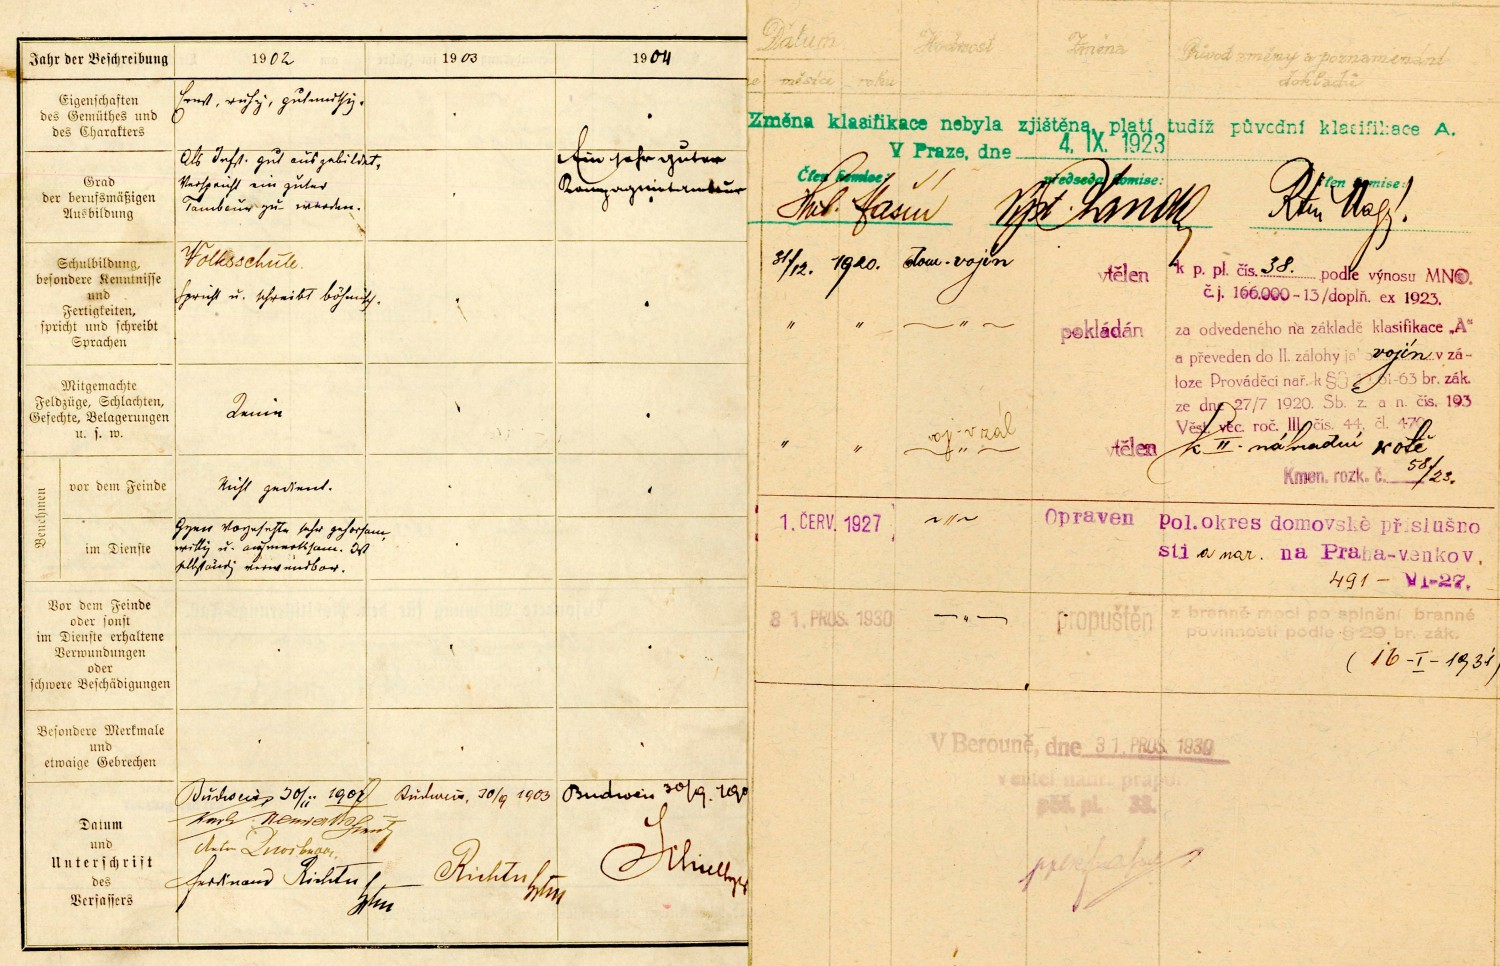 Jahr der Beschreibung 1902 1903 1904
Eigenschaften
des Gemüthes und
des Charakters
Ernst, ruhig, gutmütig.
Grad
der berufsmäßigen
Ausbildung
Als Inft. gut ausgebildet,
Verspricht ein guter
Tambour zu werden.
Ein sehr guter
Kompagnietambour
Schulbildung,
besondere Kenntnisse
und
Fertigkeiten,
spricht und schreibt
Sprachen
Volksschule.
Spricht u. schreibt böhmisch.
Mitgemachte
Feldzüge, Schlachten,
Gefechte, Belagerungen
u. s. w.
Keine
Benehmen
vor dem Feinde
Nicht gedient.
im Dienste
Gegen Vorgesetzte sehr gehorsam,
willig u. aufmerksam. Ist
selbständig verwendbar.
Vor dem Feinde
oder sonst
im Dienste erhaltene
Verwundungen
oder
schwere Beschädigungen
Besondere Merkmale
und
etwaige Gebrechen
Datum
und
Unterschrift
des
Verfassers
Budweis, 30/ 1902
Ferdinand Richter Hptm
Budweis, 30/9 1903
Richter Hptm
Budweis 30/9. 190
Datum Hodnost Změna Původ změny a poznamenání
dokladů
měsíce roku
Změna klasifikace nebyla zjištěna, platí tudíž původní klasifikace A.
V Praze, dne 4. IX. 1923
Člen komise: předseda komise: člen komise:
31/12. 1920. dom-vojín vtělen k p. pl. čís. 38. podle výnosu MNO.
č.j. 166.000-13/doplň. ex 1923.
" " " pokládán za odvedeného na základě klasifikace „A"
a převeden do II. zálohy vojín v zá-
loze Prováděcí nař. k § 61-63 br. zák.
ze dne 27/7 1920. Sb. z. a n. čís. 193
Věst. věc. roč. III. čís. 44, čl. 470
" " voj. v zál. " vtělen k II - náhradní rotě
Kmen. rozk. č. 58/23.
1. ČERV. 1927 " Opraven pol. okres domovské příslušno
sti a nar. na Praha-venkov.
491 - VI-27.
31. PROS. 1930 " propuštěn z branné moci po splnění branné
povinnosti podle § 29 br. zák.
(16-I-1931)
V Berouně, dne 31. PROS. 1930
velitel náhr. prapor.
pěš. pl. 38.